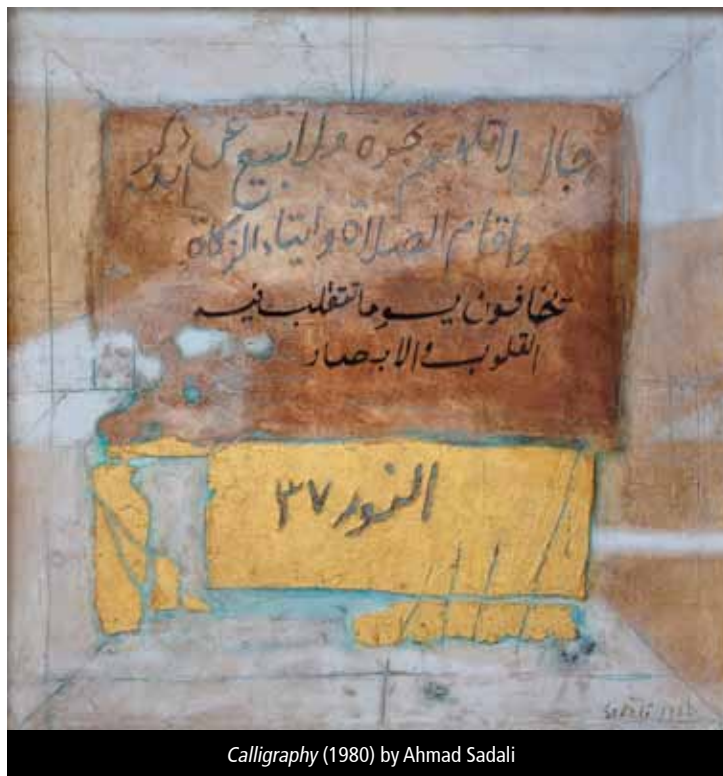 رجال لا تلهيهم تجرة ولا بيع عن ذكر الله
واقام الصلاة وايتاء الزكاة
يخافون يوما تتقلب فيه
القلوب والابصار
النور ٣٧
Calligraphy (1980) by Ahmad Sadali